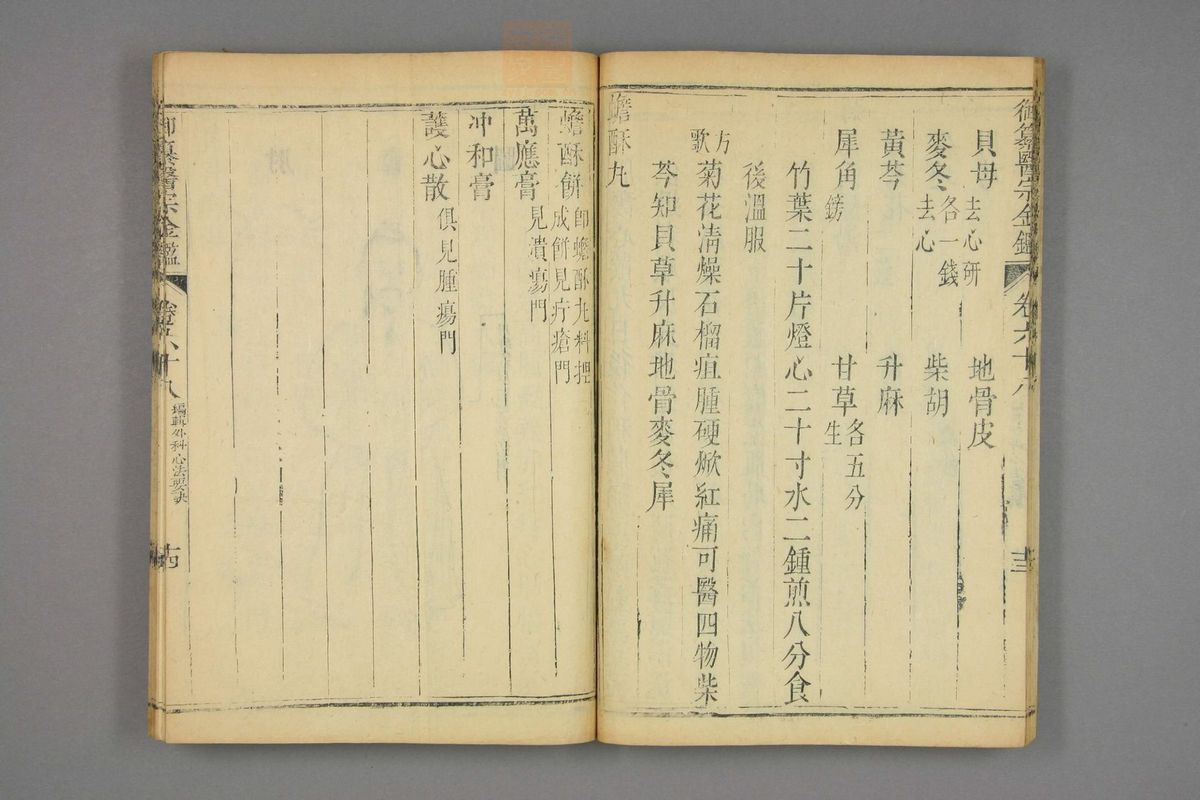 御纂醫宗金鑑 卷六十八 十三
貝母去心研 地骨皮
麥冬去心各一錢 柴胡
黃芩 升麻
犀角鎊 甘草生各五分
竹葉二十片燈心二十寸水二鍾煎八分食
後溫服
方歌 菊花清燥石榴疽腫硬焮紅痛可醫四物柴
芩知貝草升麻地骨麥冬犀
蟾酥丸
蟾酥餅即蟾酥丸料捏成餅見疔瘡門
萬應膏見潰瘍門
冲和膏
護心散俱見腫瘍門
御纂醫宗金鑑 卷六十八 編輯外科心法要訣 十四